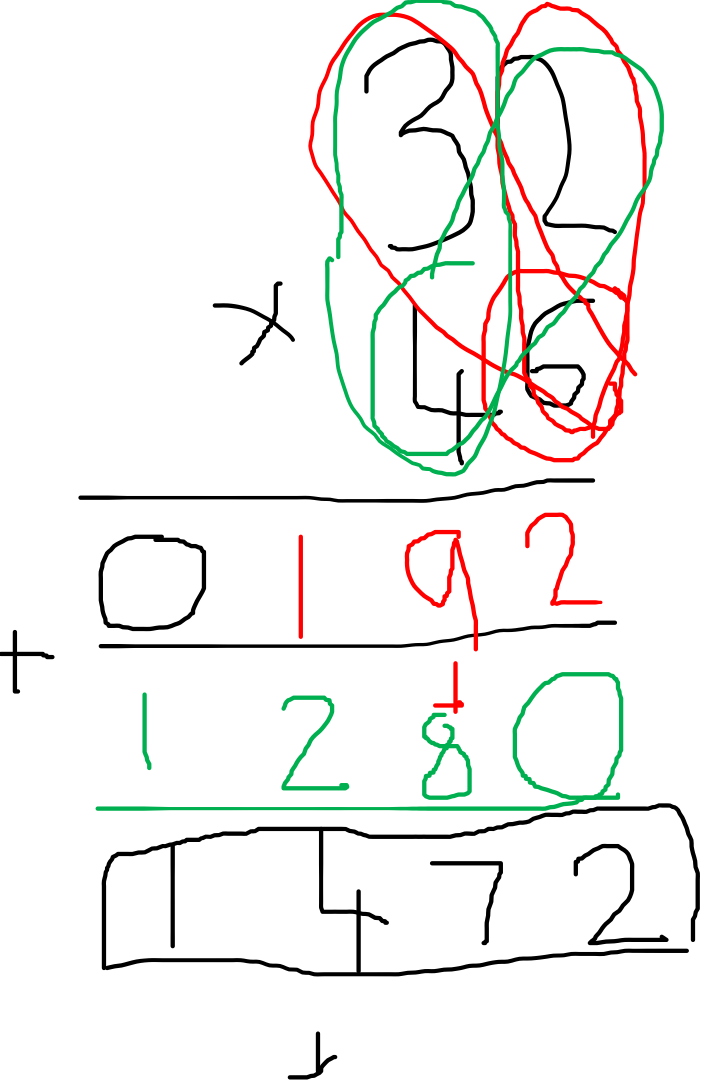 32
× 46
0192
+
1
1280
1472
1